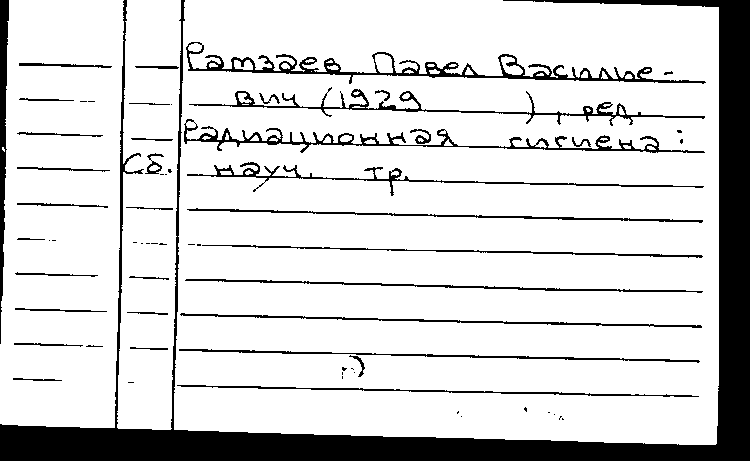 Рамзаев, Павел Василье-
вич (1929 ), ред.
Радиационная гигиена:
Сб. науч. тр.